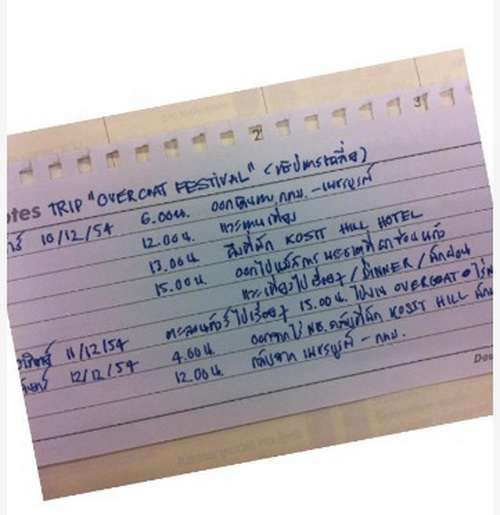 1 2 3
otes TRIP "OVERCOAT FESTIVAL" (ทริปเพชรบูรณ์)
10/12/54 6.00น. ออกเดินทาง กทม. - เพชรบูรณ์
12.00น. แวะทานเที่ยง
13.00น. ถึงที่พัก KOSIT HILL HOTEL
15.00น. ออกไป
แวะเที่ยวไปเรื่อยๆ / DINNER / พักผ่อน
11/12/54 ตะลอนทัวร์ไปเรื่อยๆ 15.00น. ไปงาน OVERCOAT
12/12/54 4.00น. กลับที่พัก KOSIT HILL
12.00น. กลับจาก เพชรบูรณ์ - กทม.